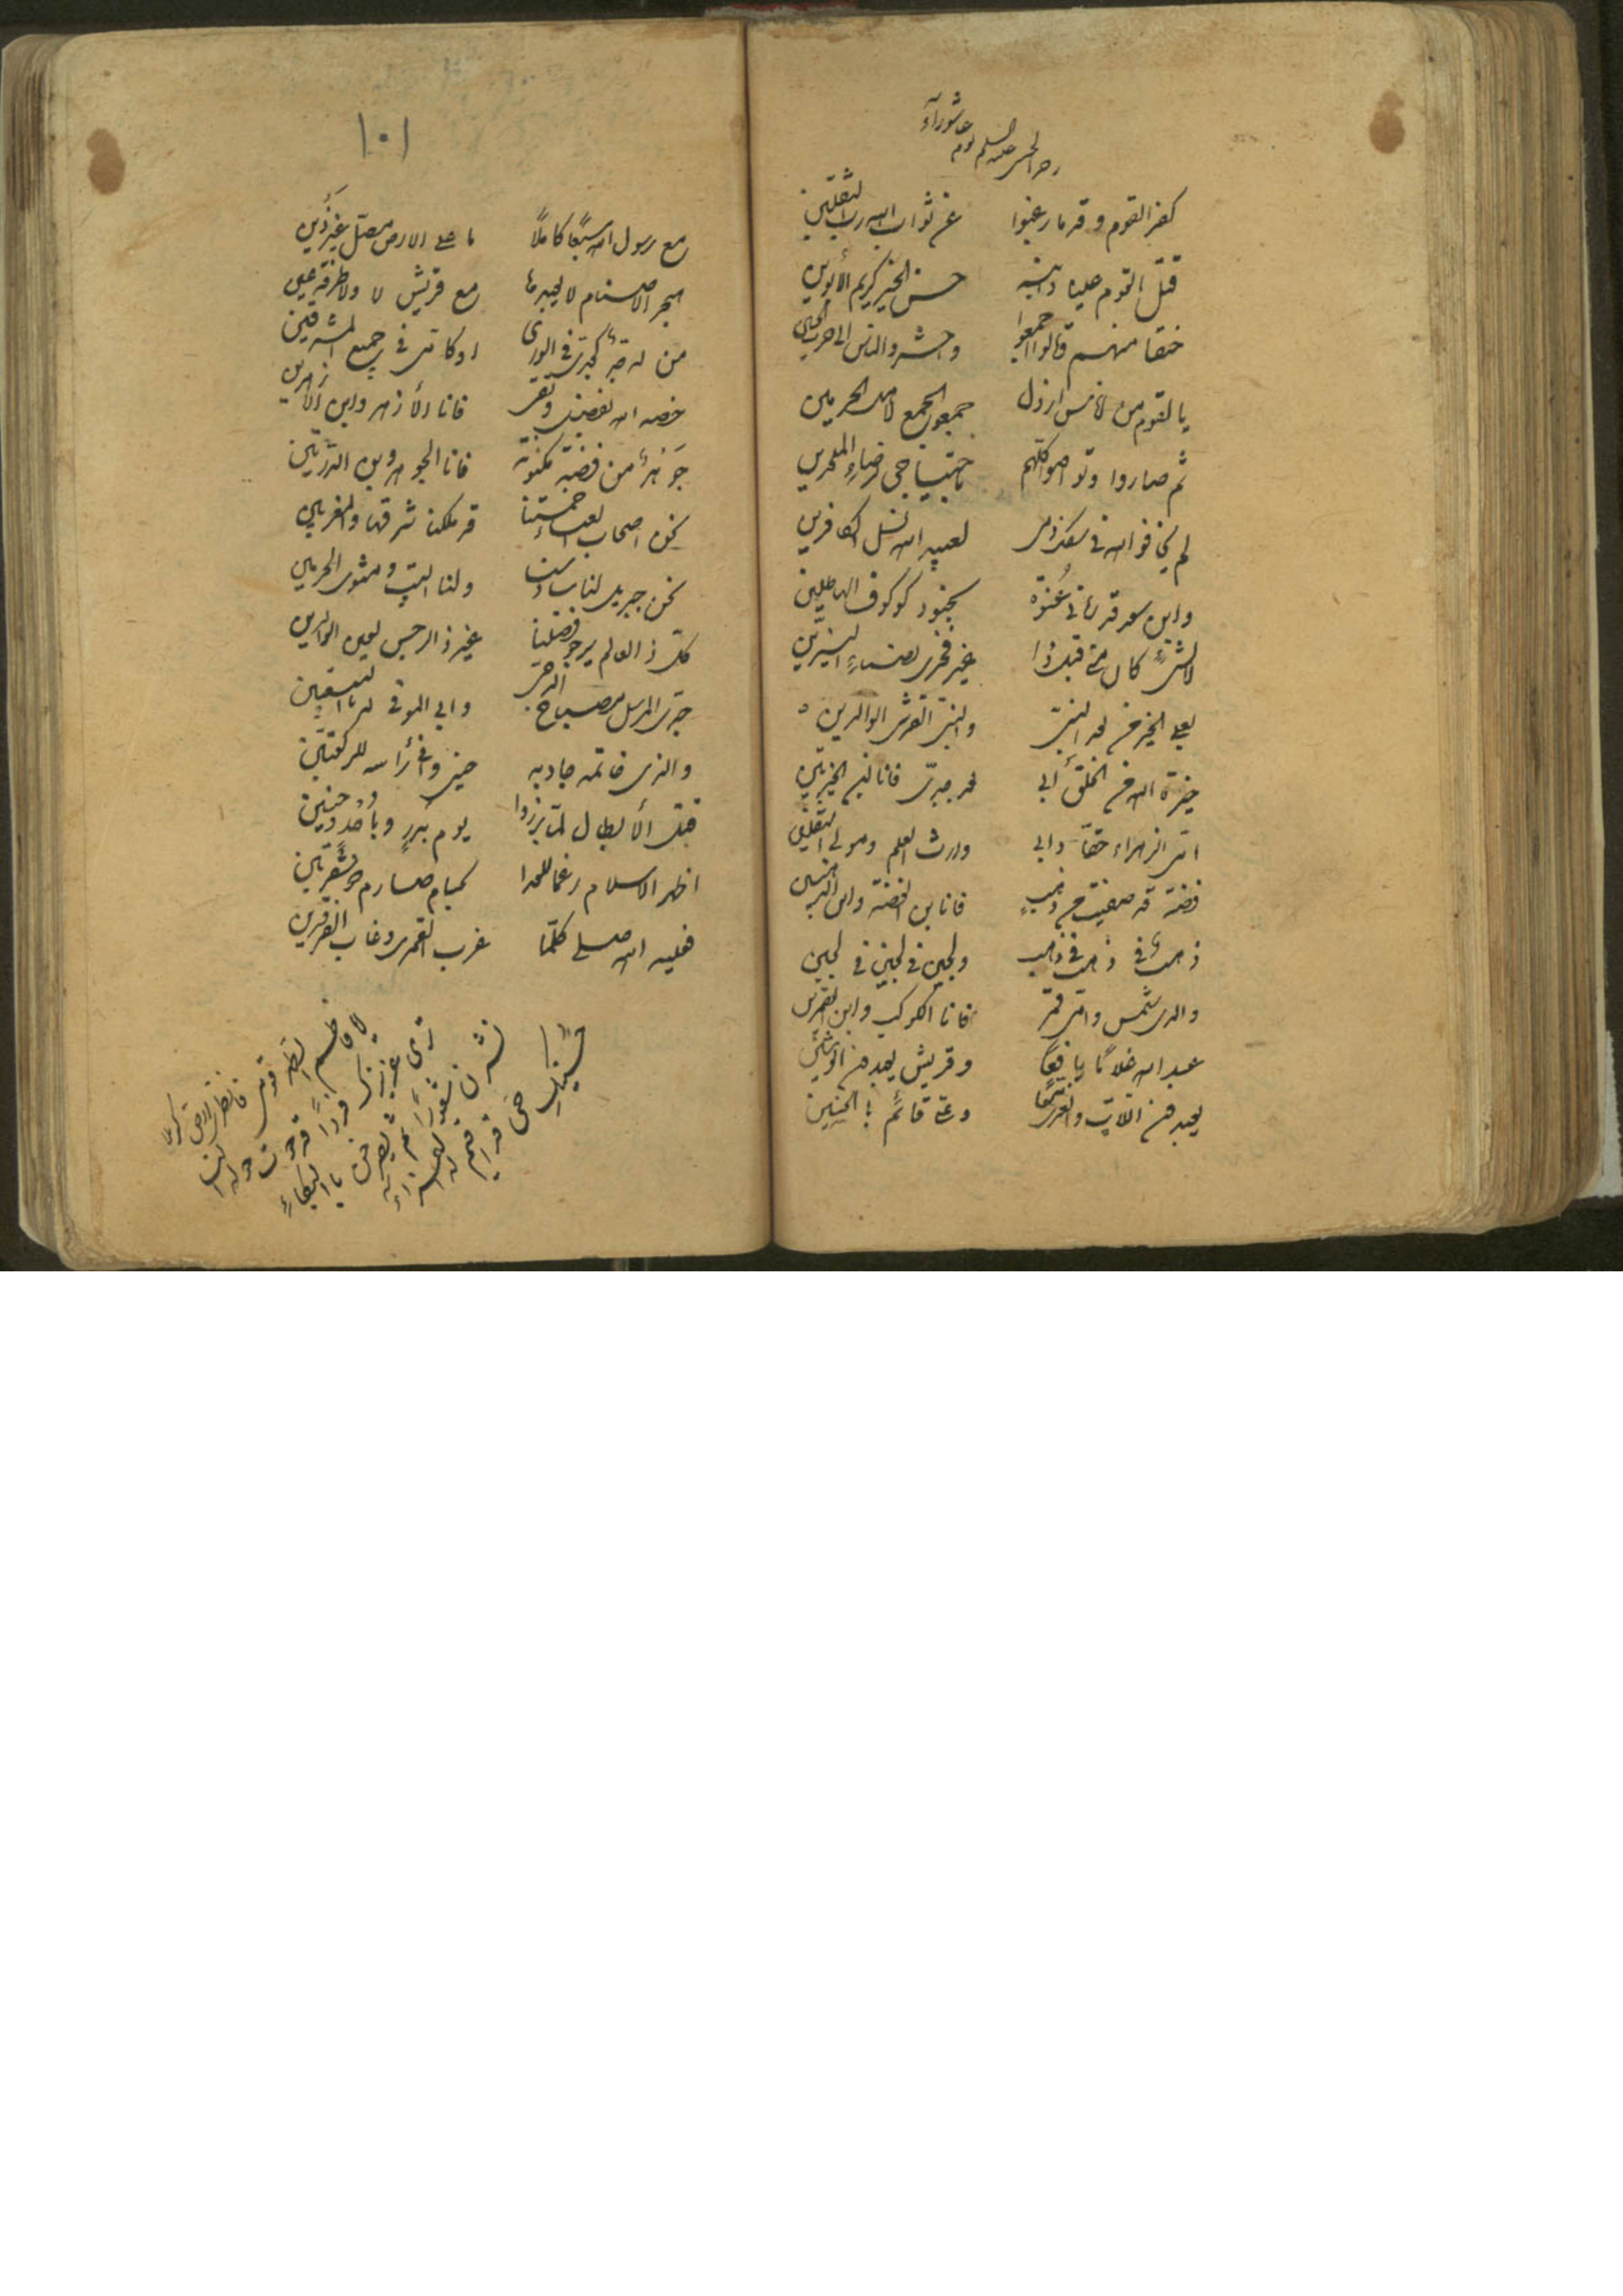 رجز الحسين عليه السلم يوم عاشوراء
كفر القوم وقدما رغبوا عن ثواب الله رب الثقلين
قتل القوم عليا وابنه حسن الخير كريم الأبوين
حنقا منهم وقالوا اجمعوا واحشروا الناس الى حرب الحسين
يا لقوم من اناس ارذل جمعوا الجمع لاهل الحرمين
ثم صاروا وتواصوا كلهم باجتياحي لرضاء الملحدين
لم يخافوا الله في سفك دمي لعبيد الله نسل الكافرين
وابن سعد قد رماني عنوة بجنود كوكوف الهاطلين
لا لشئ كان مني قبل ذا غير فخري بضياء النيرين
بعلي الخير من بعد النبي والنبي القرشي الوالدين
خيرة الله من الخلق أبي بعد جدي فانا ابن الخيرتين
امي الزهراء حقا وابي وارث العلم ومولى الثقلين
فضة قد صفيت من ذهب فانا ابن الفضة وابن الذهبين
ذهب في ذهب في ذهب ولجين في لجين في لجين
والدي شمس وامي قمر فانا الكوكب وابن القمرين
عبد الله غلاما يافعا وقريش يعبدون الوثنين
يعبدون اللات والعزى معا وعلي قائم بالحسنين
١٠١
مع رسول الله سبعا كاملا ما على الارض مصل غير ذين
هجر الاصنام لا يعبدها مع قريش لا ولا طرفة عين
من له جد كجدي في الورى او كامي في جميع المشرقين
خصه الله بفضل وتقى فانا الأزهر وابن الأزهرين
جوهر من فضة مكنونة فانا الجوهر وبن الدرتين
نحن اصحاب العباء خمستنا قد ملكنا شرقها والمغربين
نحن جبريل لنا سادسنا ولنا البيت ومثوى الحرمين
كل ذا العالم يرجو فضلنا غير ذا الرجس لعين الوالدين
جدي المرسل مصباح الدجى وابي الموفي له بالبيعتين
والذي خاتمه جاد به حين وافى رأسه للركعتين
قتل الأبطال لما برزوا يوم بدر وبأحد وحنين
اظهر الاسلام رغما للعدا بحسام صارم ذي شفرتين
فعليه الله صلى كلما غرب القمري وغاب الفرقدين